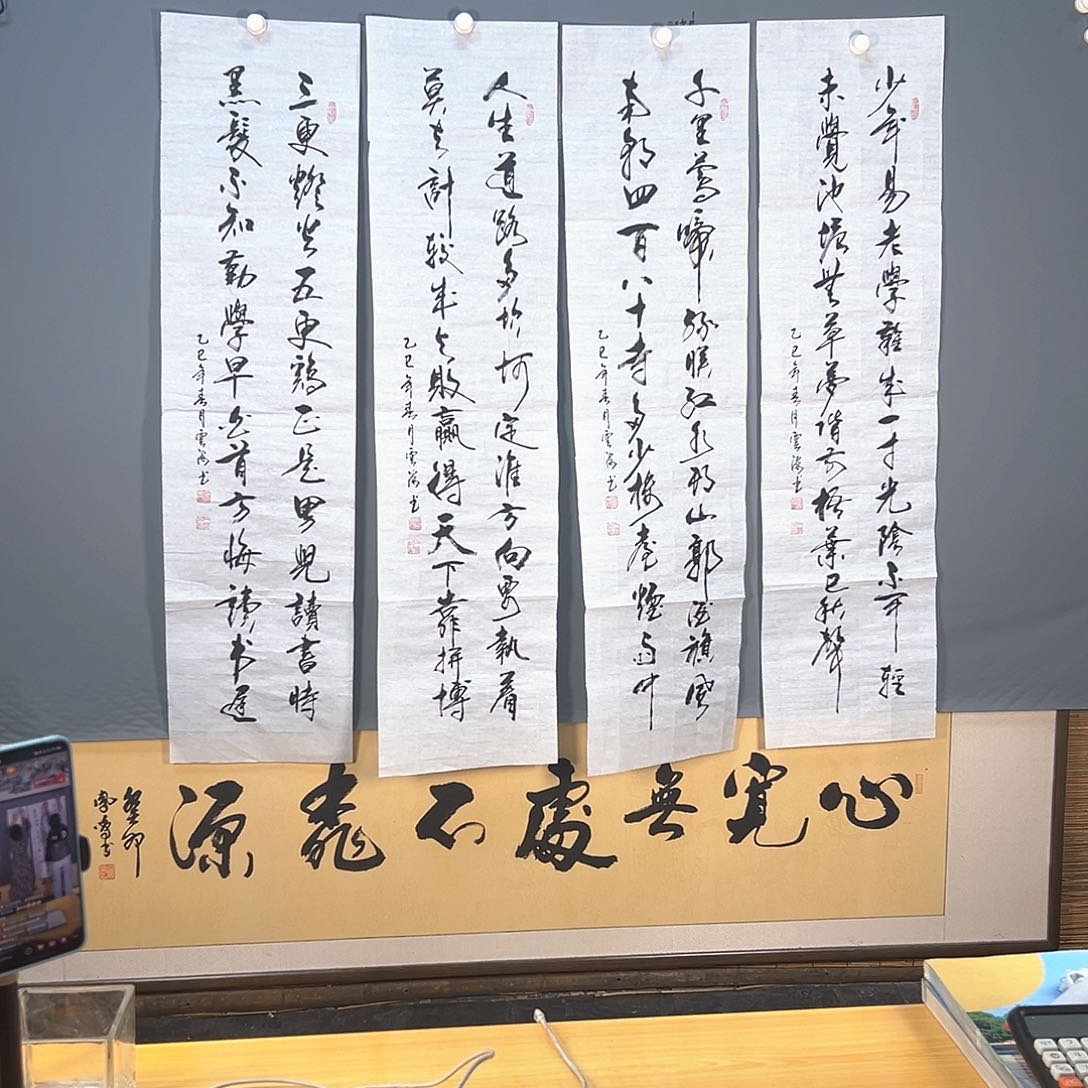 少年易老學難成一寸光陰不可輕
未覺池塘春草夢階前梧葉已秋聲
乙巳年春月雲海书
千里鶯啼綠映紅水村山郭酒旗風
南朝四百八十寺多少樓臺煙雨中
乙巳年春月雲海书
人生道路多坎坷定准方向要執着
莫去計較成与敗贏得天下靠拼博
乙巳年春月雲海书
三更燈火五更鷄正是男兒讀書時
黑髮不知勤學早白首方悔讀书遲
乙巳年春月雲海书
心寬無處不桃源
癸卯